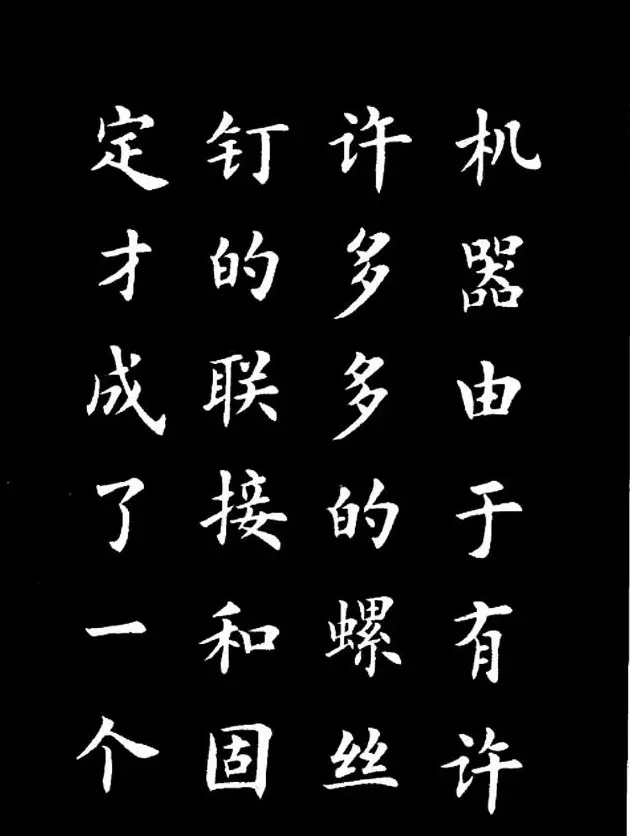 机器由于有许
许多多的螺丝
钉的联接和固
定才成了一个